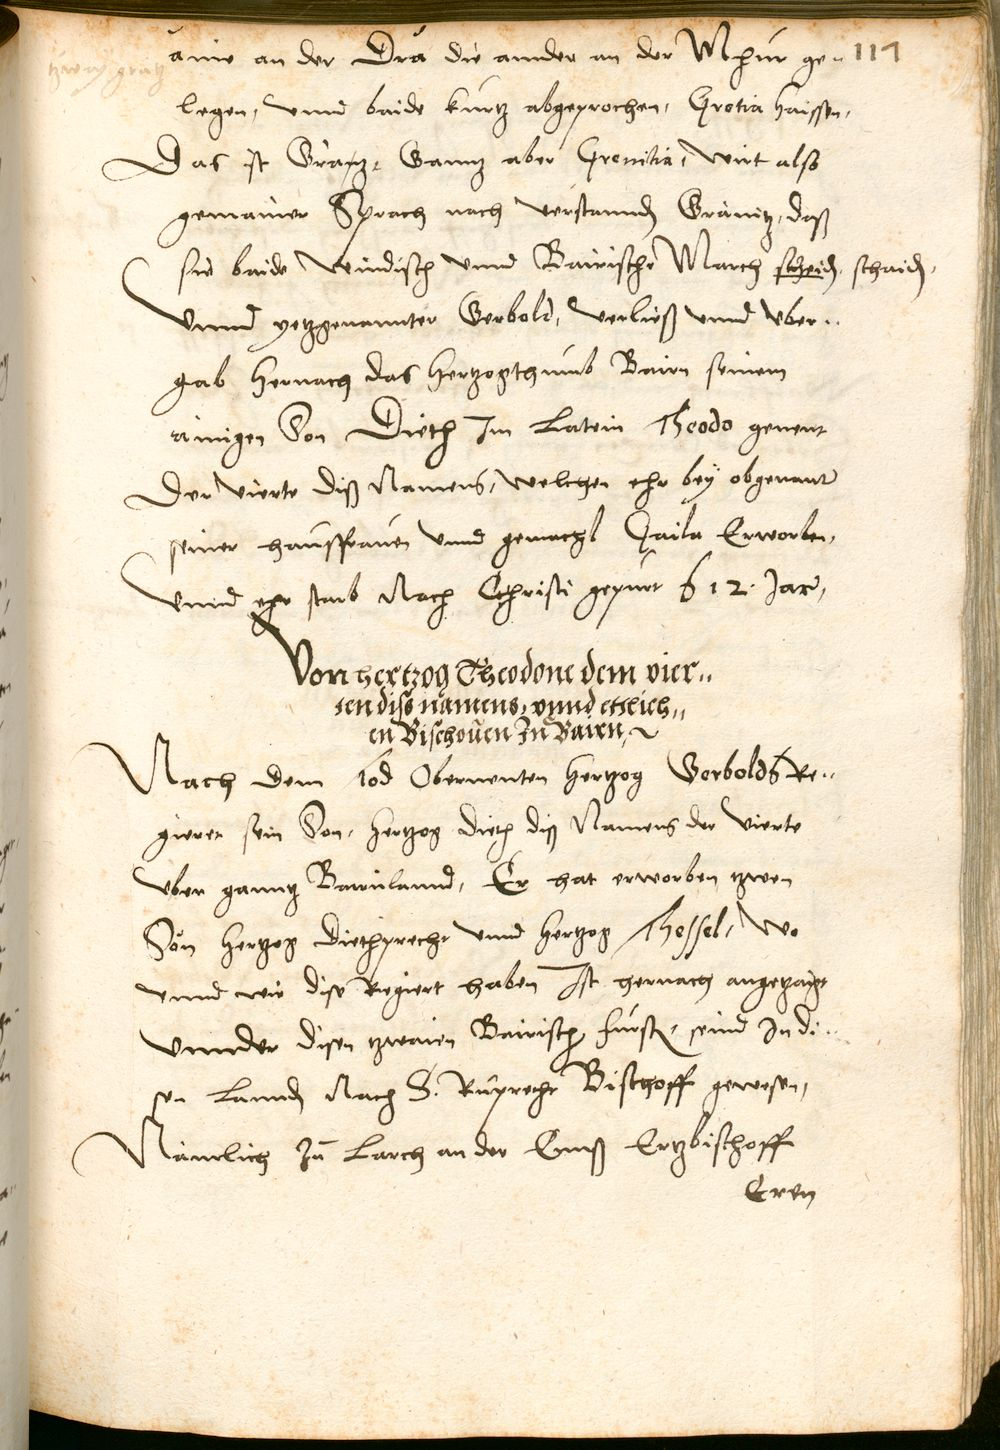 117
tzway grätz
aine an der Dra die ander an der Mhur ge=
legen, vnnd baide kurtz abgeprochen, Gretia haissen,
Das ist Grätz, Ganntz aber Grenitia, wirt also
gemainer Sprach nach verstannden Gränitz, daß
sie baide Windisch vnnd Bairische March scheiden schaiden,
Vnnd yetzgenannter Gerbold, verließ vnnd vber=
gab hernach das hertzogthumb Bairn seinem
ainigen Son Dieth Im Latein Theodo genent
Der Vierte diß Namens, welchen ehr bey obgenant
seiner haußfrauen vnnd gemachl Haila Erworben,
Vnnd ehr starb Nach Christi gepurt 612. Jar,
Von hertzog Theodone dem vier=
ten diss namens, vnnd ettlich=
en Bischouen In Bairn,
Nach dem tod Obernenten hertzog Gerbolds Re=
gieret sein Son, hertzog Dieth diß Namens der Vierte
vber ganntz Bairnlannd, Er hat erworben tzwen
Sön hertzog Diethprecht vnnd hertzog Thessel, Wo
vnnd wie dise Regiert haben Ist hernach angetzaigt
Vnnder disen tzwaien Bairisch fürsten, seind In di=
sen Lannden Nach S. Ruprecht Bischoff gewesen,
Nämlich Zu Larch an der Ennß Ertzbischoff
Eren